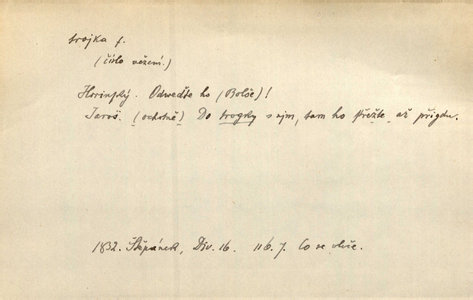 trojka f.
(číslo vězení.)
Horinský. Odwedte ho (Bolše)!
Jaroš. (ochotně) Do trogky s ním, tam ho střežte, až přigdu.
1832. Štěpánek, Div. 16. 116. 7. Co se vleče.